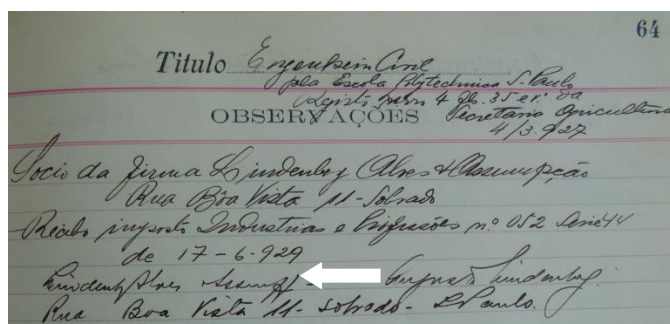 64
Titulo Engenheiro Civil
pela Escola Polytechnica S. Paulo
Registo Livro 4 fls. 35 e v. da
OBSERVAÇÕES Secretaria Agricultura
4/3.927
Socio da firma Lindenberg Alves & Assumpção
Rua Bôa Vista 11 - Sobrado
Recibo imposto Industrias e Profissões n.º 052 Serie 44
de 17-6-929
Lindenberg Alves Assumpç Augusto Lindenberg.
Rua Boa Vista 11 - Sobrado - S. Paulo.